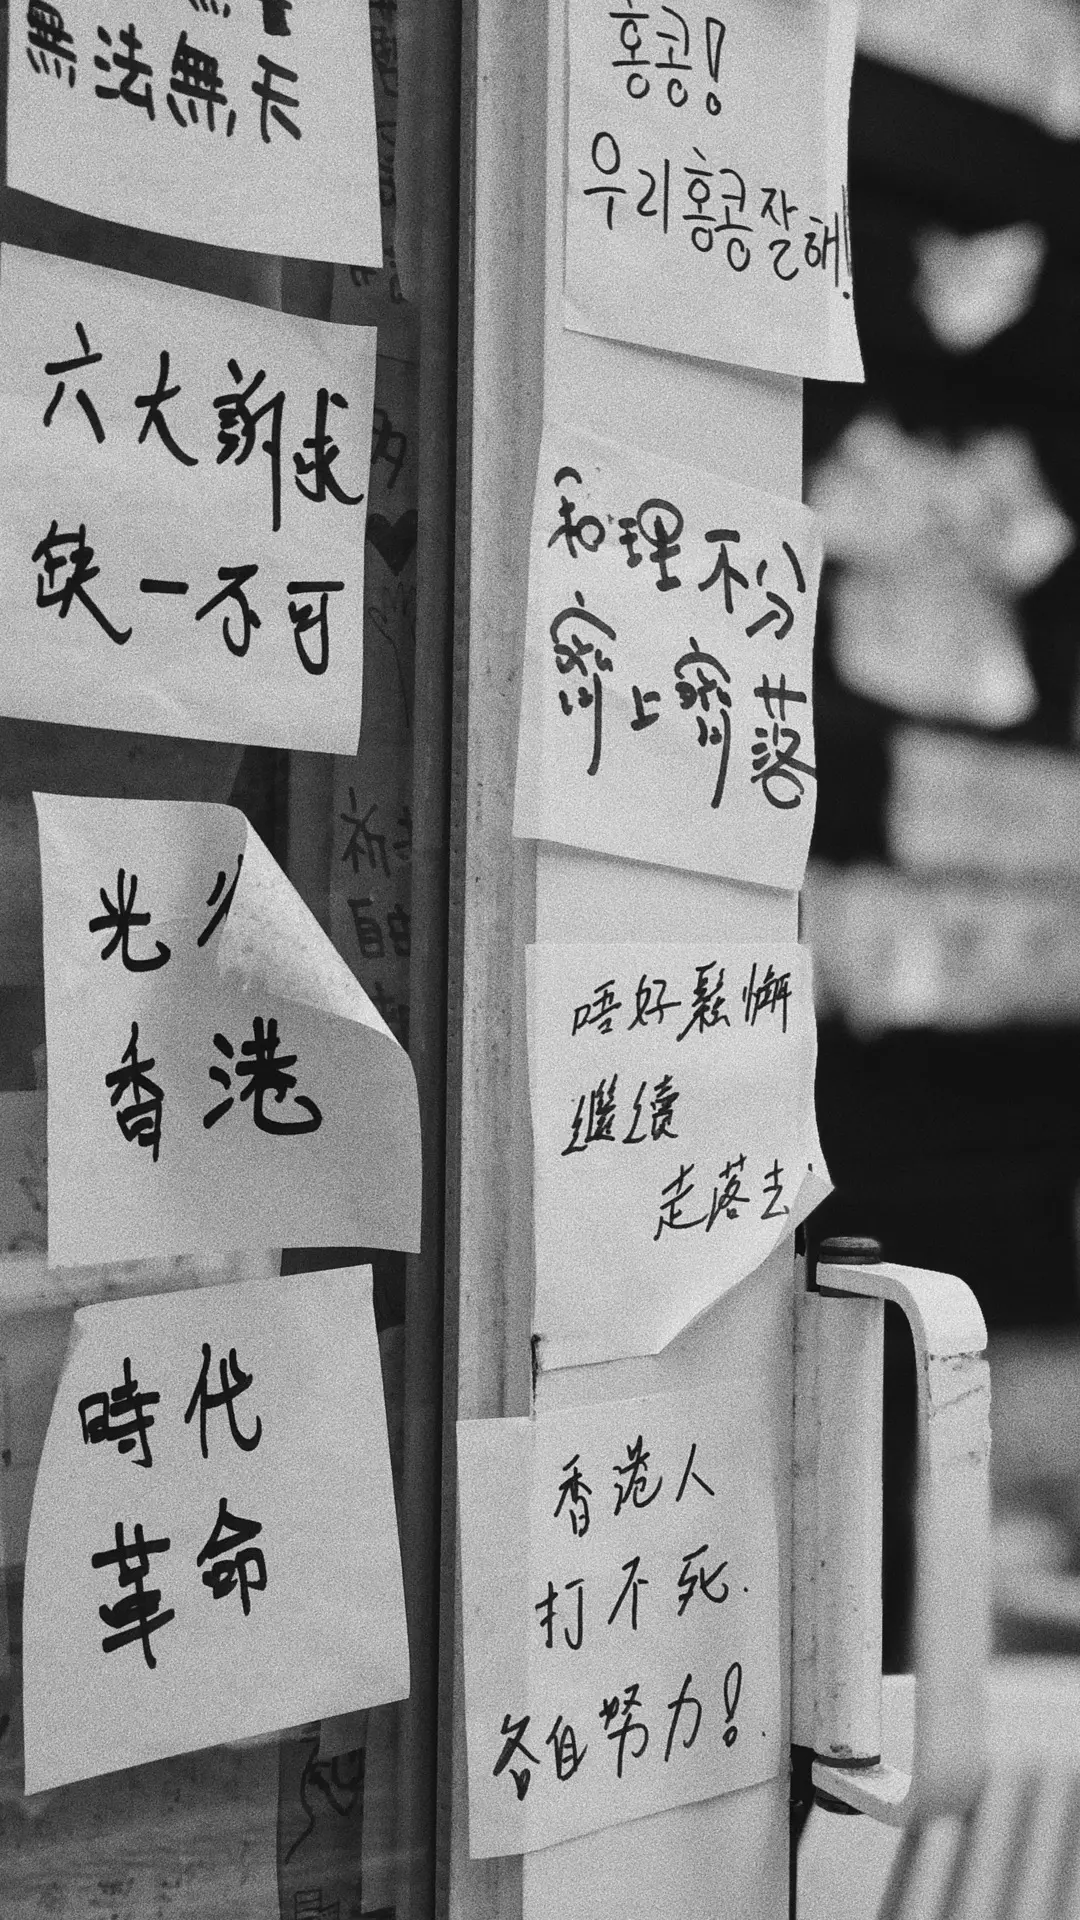 無法無天
六大訴求
缺一不可
光
香港
時代
革命
홍콩!
우리홍콩잘해!
和理不分
齊上齊落
唔好鬆懈
繼續
走落去
香港人
打不死.
各自努力!